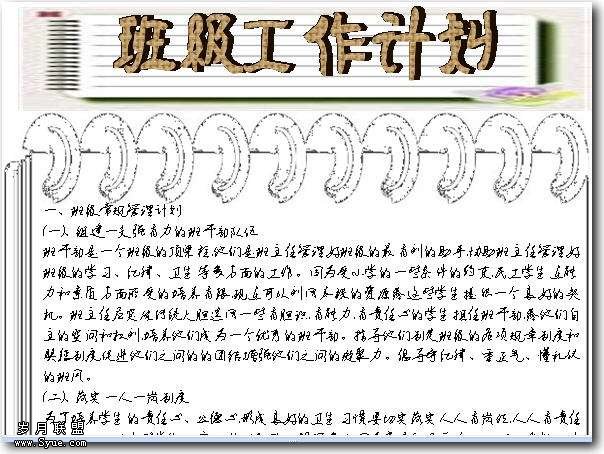 班级工作计划
一、班级常规管理计划
(一)、组建一支强有力的班干部队伍
班干部是一个班级的顶梁柱,他们是班主任管理好班级的最有利的助手,协助班主任管理好
班级的学习、纪律、卫生等多方面的工作。因为受小学的一些条件的约束,民工学生在能
力和素质方面所受的培养有限,现在可以利用系统的资源给这些学生提供一个良好的契
机。班主任启实应传统大胆选用一些有胆识,有能力,有责任心的学生担任班干部,给他们自
主的空间和权利,培养他们成为一个优秀的班干部。指导他们制定班级的各项规章制度和
联络制度,促进他们之间的的团结,增强他们之间的凝聚力。倡导守纪律、重正气、懂礼仪
的班风。
(二)、落实一人一岗制度
为了培养学生的责任心、公德心,形成良好的卫生习惯,要切实落实人人有岗位,人人有责任
岁月联盟
www.Syue.com